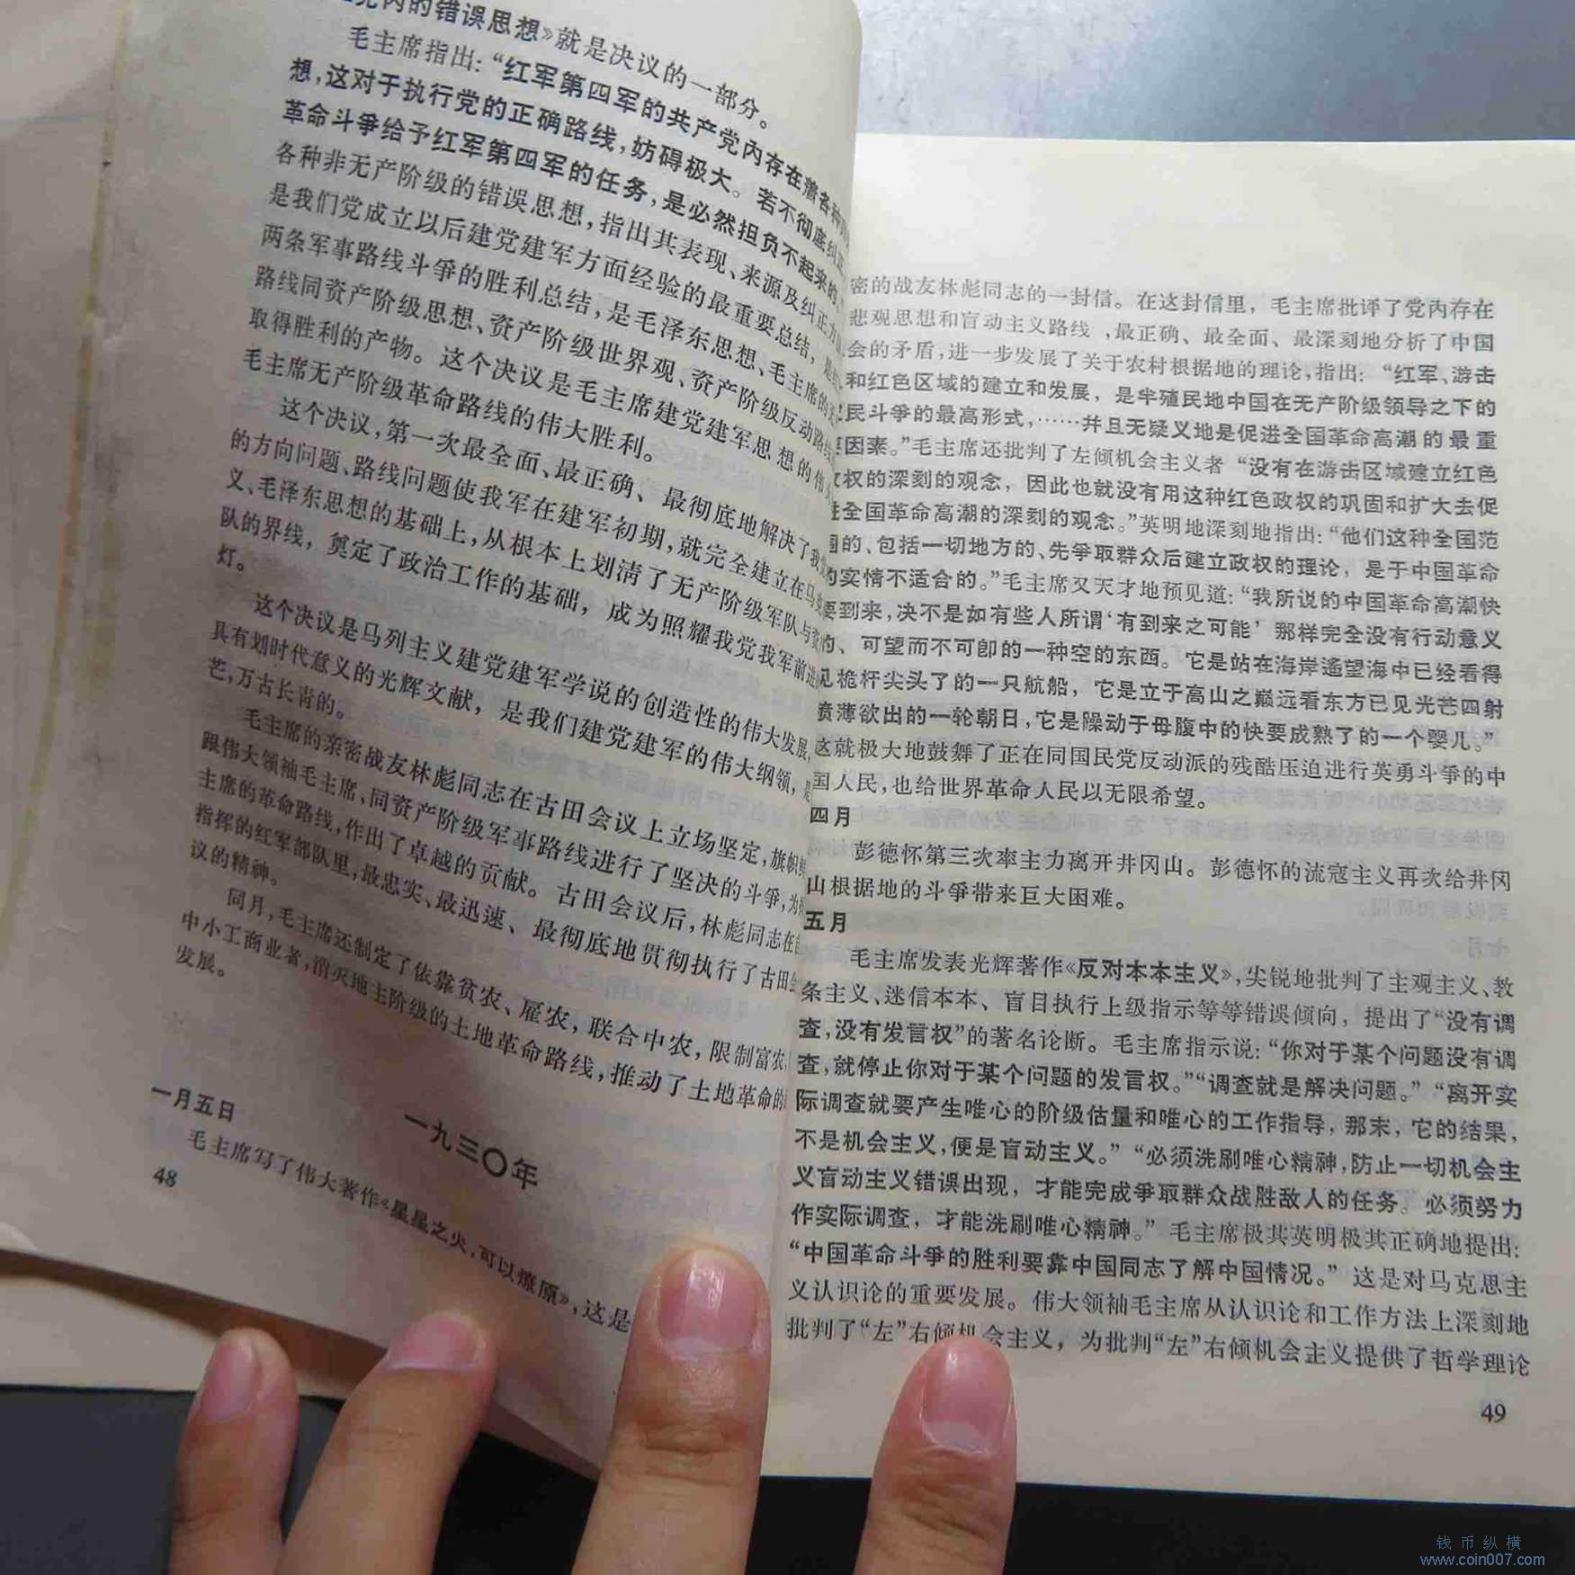 党内的错误思想》就是决议的一部分。
毛主席指出：“红军第四军的共产党内存在着各种
想，这对于执行党的正确路线，妨碍极大。若不彻底纠正
革命斗争给予红军第四军的任务，是必然担负不起来的
各种非无产阶级的错误思想，指出其表现、来源及纠正方
是我们党成立以后建党建军方面经验的最重要总结，
两条军事路线斗争的胜利总结，是毛泽东思想、毛主席的
路线同资产阶级思想、资产阶级世界观、资产阶级反动路线
取得胜利的产物。这个决议是毛主席建党建军思想的伟
毛主席无产阶级革命路线的伟大胜利。
这个决议，第一次最全面、最正确、最彻底地解决了我
的方向问题、路线问题使我军在建军初期，就完全建立在马
义、毛泽东思想的基础上，从根本上划清了无产阶级军队与资
队的界线，奠定了政治工作的基础，成为照耀我党我军前进
灯。
这个决议是马列主义建党建军学说的创造性的伟大发展，
具有划时代意义的光辉文献，是我们建党建军的伟大纲领，是
芒，万古长青的。
毛主席的亲密战友林彪同志在古田会议上立场坚定，旗帜
跟伟大领袖毛主席，同资产阶级军事路线进行了坚决的斗争，为
主席的革命路线，作出了卓越的贡献。古田会议后，林彪同志在
指挥的红军部队里，最忠实、最迅速、最彻底地贯彻执行了古田
议的精神。
同月，毛主席还制定了依靠贫农、雇农，联合中农，限制富农
中小工商业者，消灭地主阶级的土地革命路线，推动了土地革命的
发展。
一九三〇年
一月五日
毛主席写了伟大著作《星星之火，可以燎原》，这是
48
密的战友林彪同志的一封信。在这封信里，毛主席批评了党内存在
悲观思想和盲动主义路线，最正确、最全面、最深刻地分析了中国
会的矛盾，进一步发展了关于农村根据地的理论，指出：“红军、游击
和红色区域的建立和发展，是半殖民地中国在无产阶级领导之下的
民斗争的最高形式，……并且无疑义地是促进全国革命高潮的最重
因素。”毛主席还批判了左倾机会主义者“没有在游击区域建立红色
权的深刻的观念，因此也就没有用这种红色政权的巩固和扩大去促
全国革命高潮的深刻的观念。”英明地深刻地指出：“他们这种全国范
的、包括一切地方的、先争取群众后建立政权的理论，是于中国革命
的实情不适合的。”毛主席又天才地预见道：“我所说的中国革命高潮快
要到来，决不是如有些人所谓‘有到来之可能’那样完全没有行动意义
的、可望而不可即的一种空的东西。它是站在海岸遥望海中已经看得
见桅杆尖头了的一只航船，它是立于高山之巅远看东方已见光芒四射
喷薄欲出的一轮朝日，它是躁动于母腹中的快要成熟了的一个婴儿。”
这就极大地鼓舞了正在同国民党反动派的残酷压迫进行英勇斗争的中
国人民，也给世界革命人民以无限希望。
四月
彭德怀第三次率主力离开井冈山。彭德怀的流寇主义再次给井冈
山根据地的斗争带来巨大困难。
五月
毛主席发表光辉著作《反对本本主义》，尖锐地批判了主观主义、教
条主义、迷信本本、盲目执行上级指示等等错误倾向，提出了“没有调
查，没有发言权”的著名论断。毛主席指示说：“你对于某个问题没有调
查，就停止你对于某个问题的发言权。”“调查就是解决问题。”“离开实
际调查就要产生唯心的阶级估量和唯心的工作指导，那末，它的结果，
不是机会主义，便是盲动主义。”“必须洗刷唯心精神，防止一切机会主
义盲动主义错误出现，才能完成争取群众战胜敌人的任务。必须努力
作实际调查，才能洗刷唯心精神。”毛主席极其英明极其正确地提出：
“中国革命斗争的胜利要靠中国同志了解中国情况。”这是对马克思主
义认识论的重要发展。伟大领袖毛主席从认识论和工作方法上深刻地
批判了“左”右倾机会主义，为批判“左”右倾机会主义提供了哲学理论
49
钱币纵横
www.coin007.com